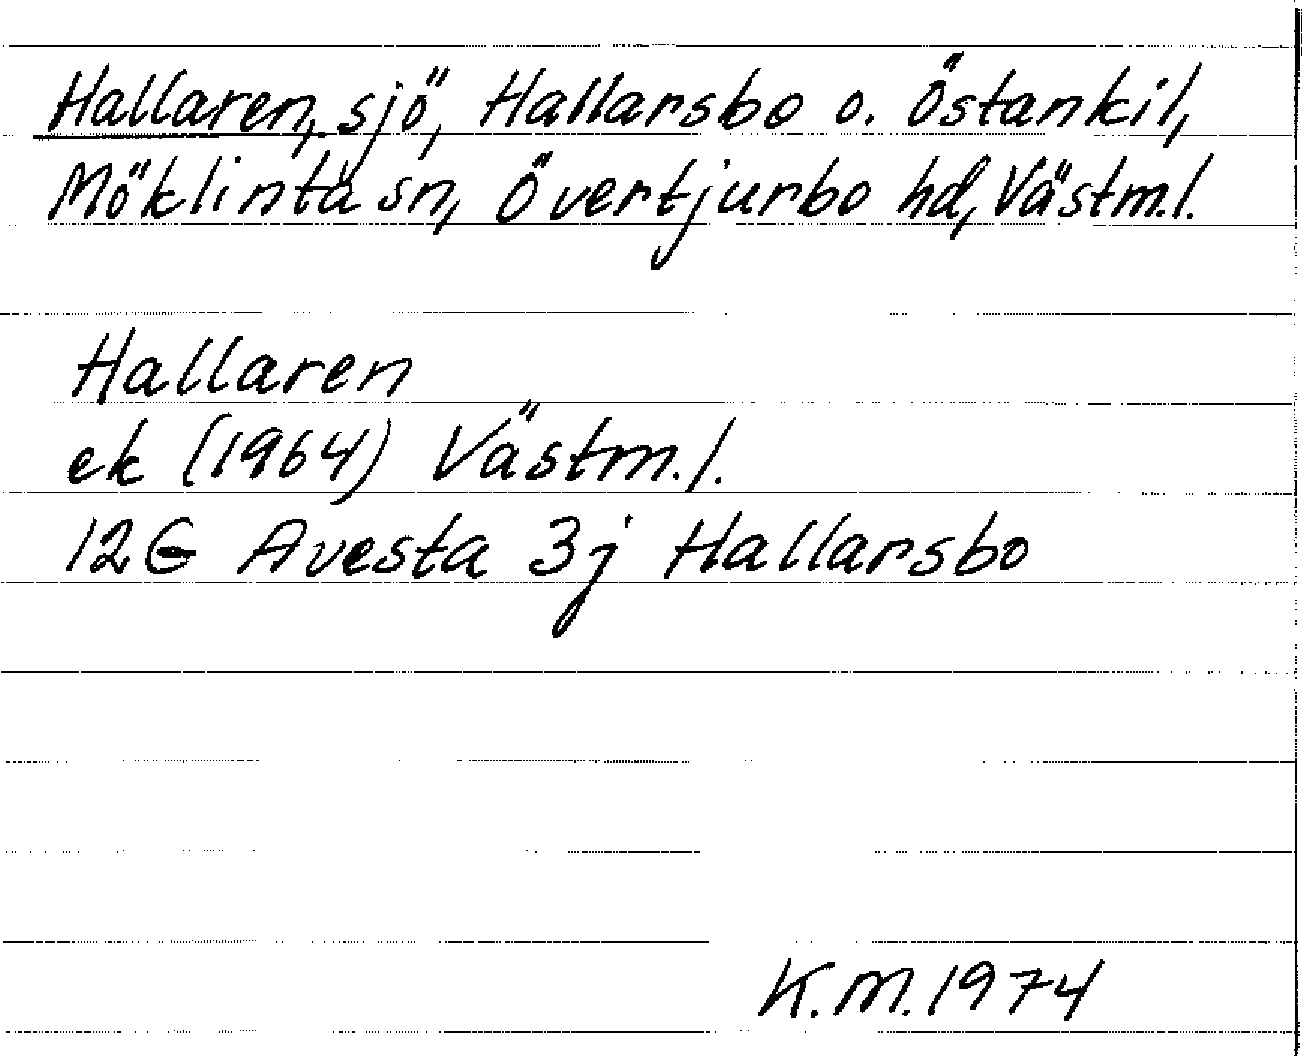 Hallaren, sjö, Hallarsbo o. Östankil,
Möklinta sn, Övertjurbo hd, Västm.l.
Hallaren
ek (1964) Västm.l.
12G Avesta 3j Hallarsbo
K.M. 1974